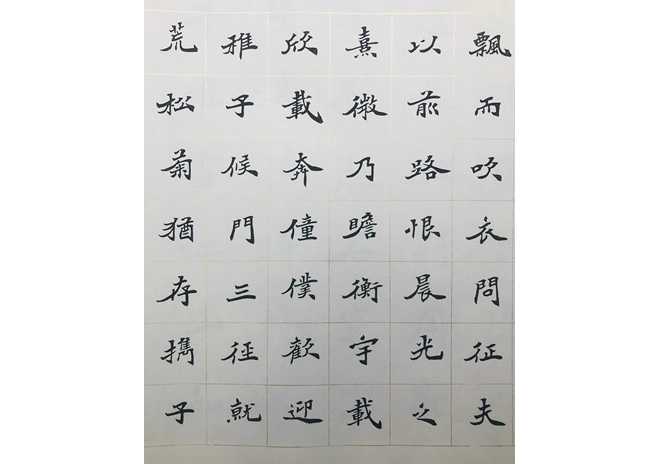 飄而吹衣問征夫
以前路恨晨光之
熹微乃瞻衡宇載
欣載奔僮僕歡迎
雅子候門三徑就
荒松菊猶存攜子